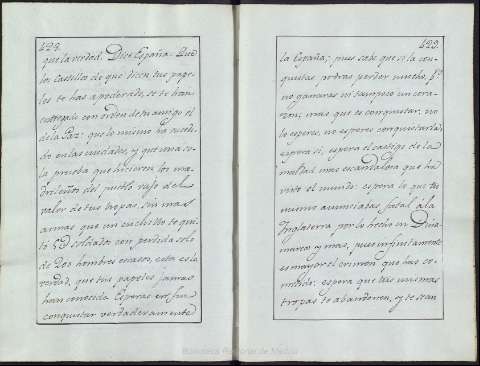 428.
que la verdad. Dice España: Que
los Castillos de que dicen tus pape-
les te has apoderado, se te han
entregado con orden de tu amigo el
de la Paz: que lo mismo ha sucedi-
do en las ciudades, y que una so-
la prueba que hicieron los ma-
drileños del pueblo vajo del
valor de tus tropas, sin mas
armas que un cuchillo te qui-
tó soldados con perdida solo
de 200 hombres escasos, esta es la
verdad, que tus papeles jamas
han conocido. Esperas en fin
conquistar verdaderamente
429.
la España; pues sabe que si la con-
quistas podras perder mucho, pº
no ganaras ni tampoco un cora-
zon; mas que es conquistar, no
lo esperes, no esperes conquistarla,
espera si, espera el castigo de la
maldad mas escandalosa que ha
visto el mundo: espera lo que tu
mismo anunciabas fatal á la
Inglaterra por lo hecho en Dina-
marca y mas, pues infinitamente
es mayor el crimen que has co-
metido: espera que tus mismas
tropas te abandonen, y te sean
Biblioteca Regional de Madrid